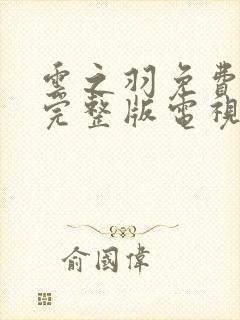 雲之羽免費
完整版電視
俞國偉